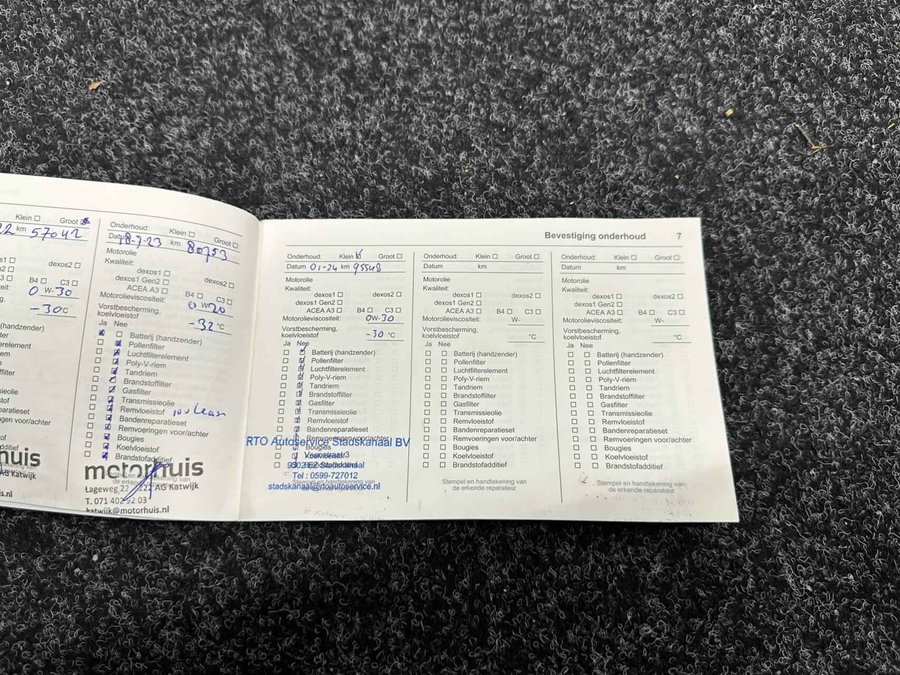 Klein Groot
km 57042
dexos2
B4 C3
0 W-30
-30c
(handzender)
Onderhoud: Klein
Groot
Datum 18-7-23 km 80753
Motorolie
Kwaliteit:
dexos1 dexos2
dexos1 Gen2
ACEA A3 B4 C3
Motorolieviscositeit: 0 W-20
Vorstbescherming,
koelvloeistof -32 °C
Ja Nee
Batterij (handzender)
Pollenfilter
Luchtfilterelement
Poly-V-riem
Tandriem
Brandstoffilter
Gasfilter
Transmissieolie
Remvloeistof
Bandenreparatieset
Remvoeringen voor/achter
Bougies
Koelvloeistof
Brandstofadditief
motorhuis
AG Katwijk
Katwijk
T. 071 402 92 03
katwijk@motorhuis.nl
Bevestiging onderhoud 7
Onderhoud: Klein Groot
Datum 01-24 km 95548
Motorolie
Kwaliteit:
dexos1 dexos2
dexos1 Gen2
ACEA A3 B4 C3
Motorolieviscositeit: 0W-30
Vorstbescherming,
koelvloeistof -30 °C
Ja Nee
Batterij (handzender)
Pollenfilter
Luchtfilterelement
Poly-V-riem
Tandriem
Brandstoffilter
Gasfilter
Transmissieolie
Remvloeistof
Bandenreparatieset
Remvoeringen voor/achter
Bougies
RTO Autoservice Stadskanaal BV
Stadskanaal
Tel : 0599-727012
stadskanaal@rtoautoservice.nl
Onderhoud: Klein Groot
Datum km
Motorolie
Kwaliteit:
dexos1 dexos2
dexos1 Gen2
ACEA A3 B4 C3
Motorolieviscositeit: W-
Vorstbescherming,
koelvloeistof °C
Ja Nee
Batterij (handzender)
Pollenfilter
Luchtfilterelement
Poly-V-riem
Tandriem
Brandstoffilter
Gasfilter
Transmissieolie
Remvloeistof
Bandenreparatieset
Remvoeringen voor/achter
Bougies
Koelvloeistof
Brandstofadditief
Stempel en handtekening van
de erkende reparateur
Onderhoud: Klein Groot
Datum km
Motorolie
Kwaliteit:
dexos1 dexos2
dexos1 Gen2
ACEA A3 B4 C3
Motorolieviscositeit: W-
Vorstbescherming,
koelvloeistof °C
Ja Nee
Batterij (handzender)
Pollenfilter
Luchtfilterelement
Poly-V-riem
Tandriem
Brandstoffilter
Gasfilter
Transmissieolie
Remvloeistof
Bandenreparatieset
Remvoeringen voor/achter
Bougies
Koelvloeistof
Brandstofadditief
Stempel en handtekening van
de erkende reparateur